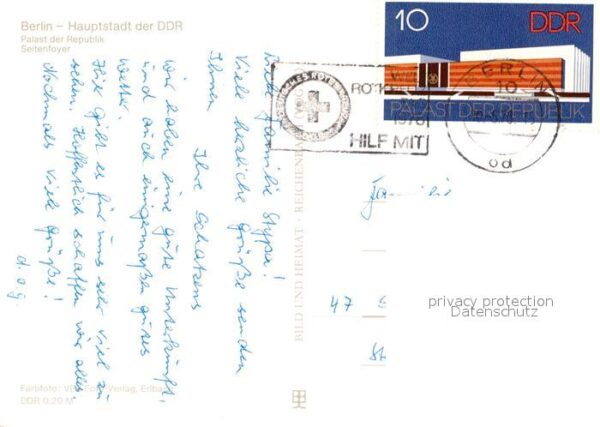 Berlin – Hauptstadt der DDR
Palast der Republik
Seitenfoyer
Liebe Familie Stypa!
Viele herzliche Grüße senden
Ihnen
Ihre Schatzens
Wir haben eine gute Unterkunft,
und auch einigermaßen gutes
Wetter.
Hier gibt es für uns sehr viel zu
sehen. Hoffentlich schaffen wir alles.
Nochmals viele Grüße!
d. o. g.
Farbfoto: Verlag, Erlbach
DDR 0,20 M
BILD UND HEIMAT · REICHENBACH
10 DDR
PALAST DER REPUBLIK
HILF MIT
BERLIN
10
od
Familie
47
privacy protection
Datenschutz